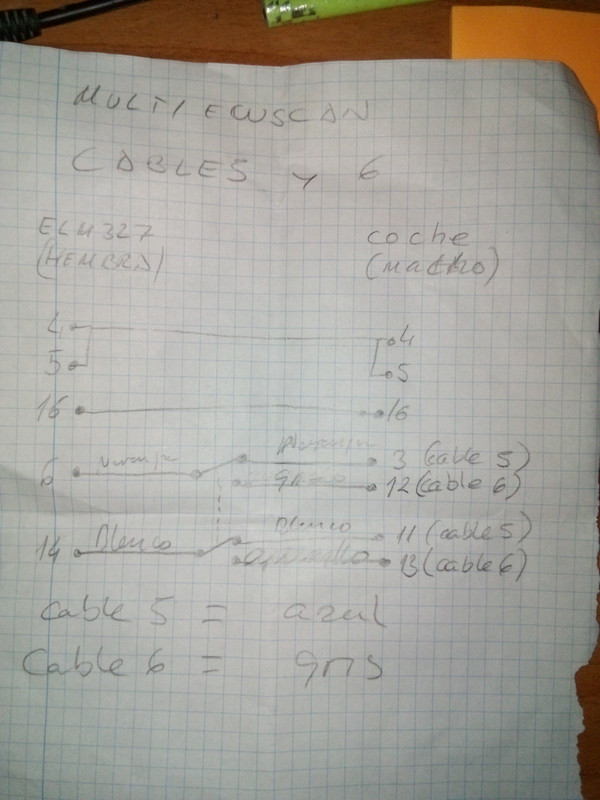 MULTIECUSCAN
CABLE 5 y 6
ELM327
(HEMBRA)
coche
(macho)
4
4
5
5
16
16
naranja
naranja
3 (cable 5)
6
gris
12 (cable 6)
Blanco
11 (cable 5)
14
Blanco
amarillo
13 (cable 6)
cable 5 = azul
Cable 6 = gris